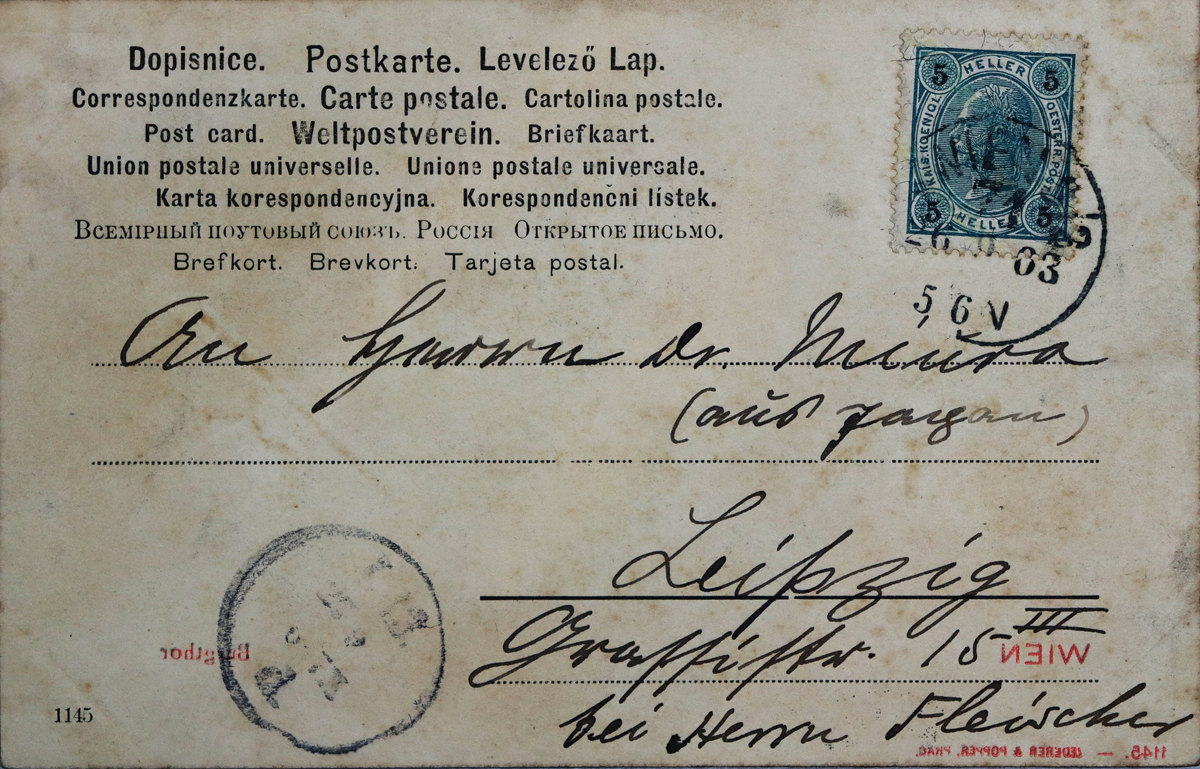 Dopisnice. Postkarte. Levelező Lap.
Correspondenzkarte. Carte postale. Cartolina postale.
Post card. Weltpostverein. Briefkaart.
Union postale universelle. Unione postale universale.
Karta korespondencyjna. Korespondenčni lístek.
Всемірный поутовый союзъ. Россія Открытое письмо.
Brefkort. Brevkort. Tarjeta postal.
5 HELLER 5
KAIS. KOENIGL. OESTERR. POST
5 HELLER 5
03
5 6 V
An Herrn Dr. Miura
(aus Japan)
Leipzig
Grassistr. 15 III
WIEN
Burgthor
bei Herrn Fleischer
1145
1145. — LEDERER & POPPER, PRAG.